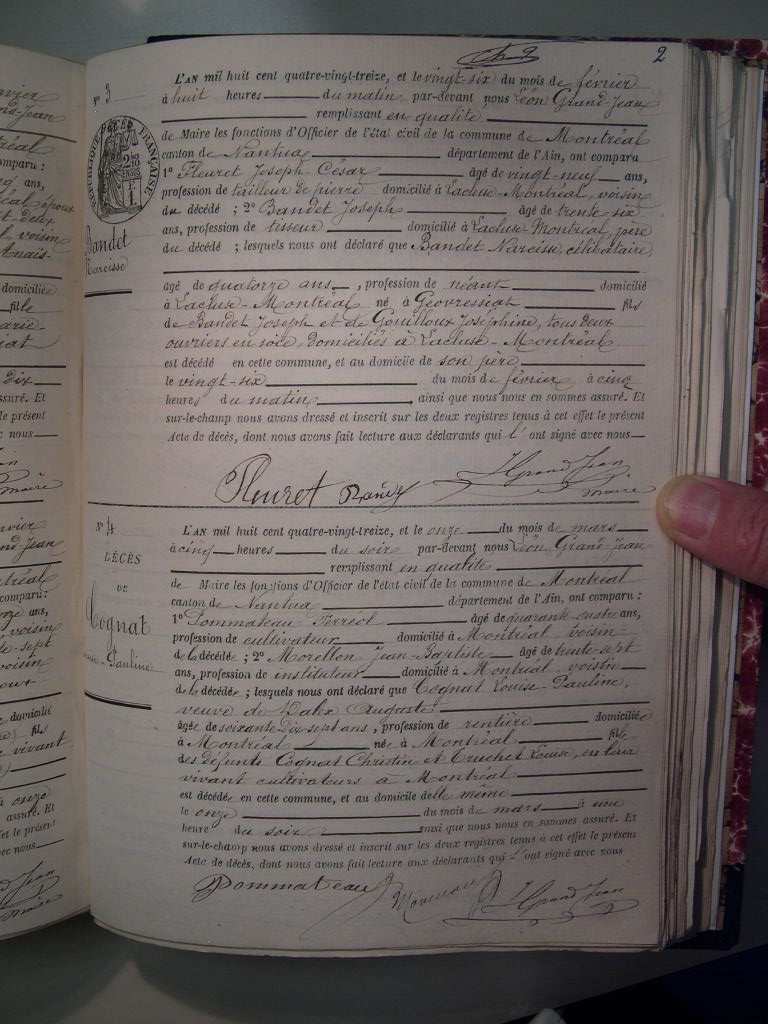 2
Nº 3
L'AN mil huit cent quatre-vingt-treize, et le vingt-six du mois de février
à huit heures du matin par-devant nous Léon Grand-Jean
remplissant en qualité
de Maire les fonctions d'Officier de l'état civil de la commune de Montréal
canton de Nantua département de l'Ain, ont comparu
1º Fleuret Joseph-César âgé de vingt-neuf ans,
profession de tailleur de pierre domicilié à Lacluse-Montréal, voisin
du décédé ; 2º Bandet Joseph âgé de trente-six
ans, profession de tisseur domicilié à Lacluse-Montréal, père
du décédé ; lesquels nous ont déclaré que Bandet Narcisse, célibataire,
Bandet
Narcisse
âgé de quatorze ans, profession de néant domicilié
à Lacluse-Montréal né à Géovressiat fils
de Bandet Joseph et de Gouilloux Joséphine, tous deux
ouvriers en soie, domiciliés à Lacluse-Montréal
est décédé en cette commune, et au domicile de son père
le vingt-six du mois de février à cinq
heures du matin, ainsi que nous nous en sommes assuré. Et
sur-le-champ nous avons dressé et inscrit sur les deux registres tenus à cet effet le présent
Acte de décès, dont nous avons fait lecture aux déclarants qui l'ont signé avec nous
Fleuret LGrand Jean
maire
Nº 4
DÉCÈS
DE
Cognat
Louise-Pauline
L'AN mil huit cent quatre-vingt-treize, et le onze du mois de mars
à cinq heures du soir par-devant nous Léon Grand-Jean
remplissant en qualité
de Maire les fonctions d'Officier de l'état civil de la commune de Montréal
canton de Nantua département de l'Ain, ont comparu :
1º Pommateau Ferréol âgé de quarante quatre ans,
profession de cultivateur domicilié à Montréal voisin
de la décédée ; 2º Morellon Jean-Baptiste âgé de trente-sept
ans, profession de instituteur domicilié à Montréal voisin
de la décédée ; lesquels nous ont déclaré que Cognat Louise-Pauline,
veuve de Auguste
âgée de soixante dix sept ans, profession de rentière domiciliée
à Montréal née à Montréal fille
des défunts Cognat Christin et Truchet Louise, en leur
vivant cultivateurs à Montréal
est décédée en cette commune, et au domicile d'elle même
le onze du mois de mars à une
heure du soir ainsi que nous nous en sommes assuré. Et
sur-le-champ nous avons dressé et inscrit sur les deux registres tenus à cet effet le présent
Acte de décès, dont nous avons fait lecture aux déclarants qui l'ont signé avec nous
Pommateau LGrand Jean